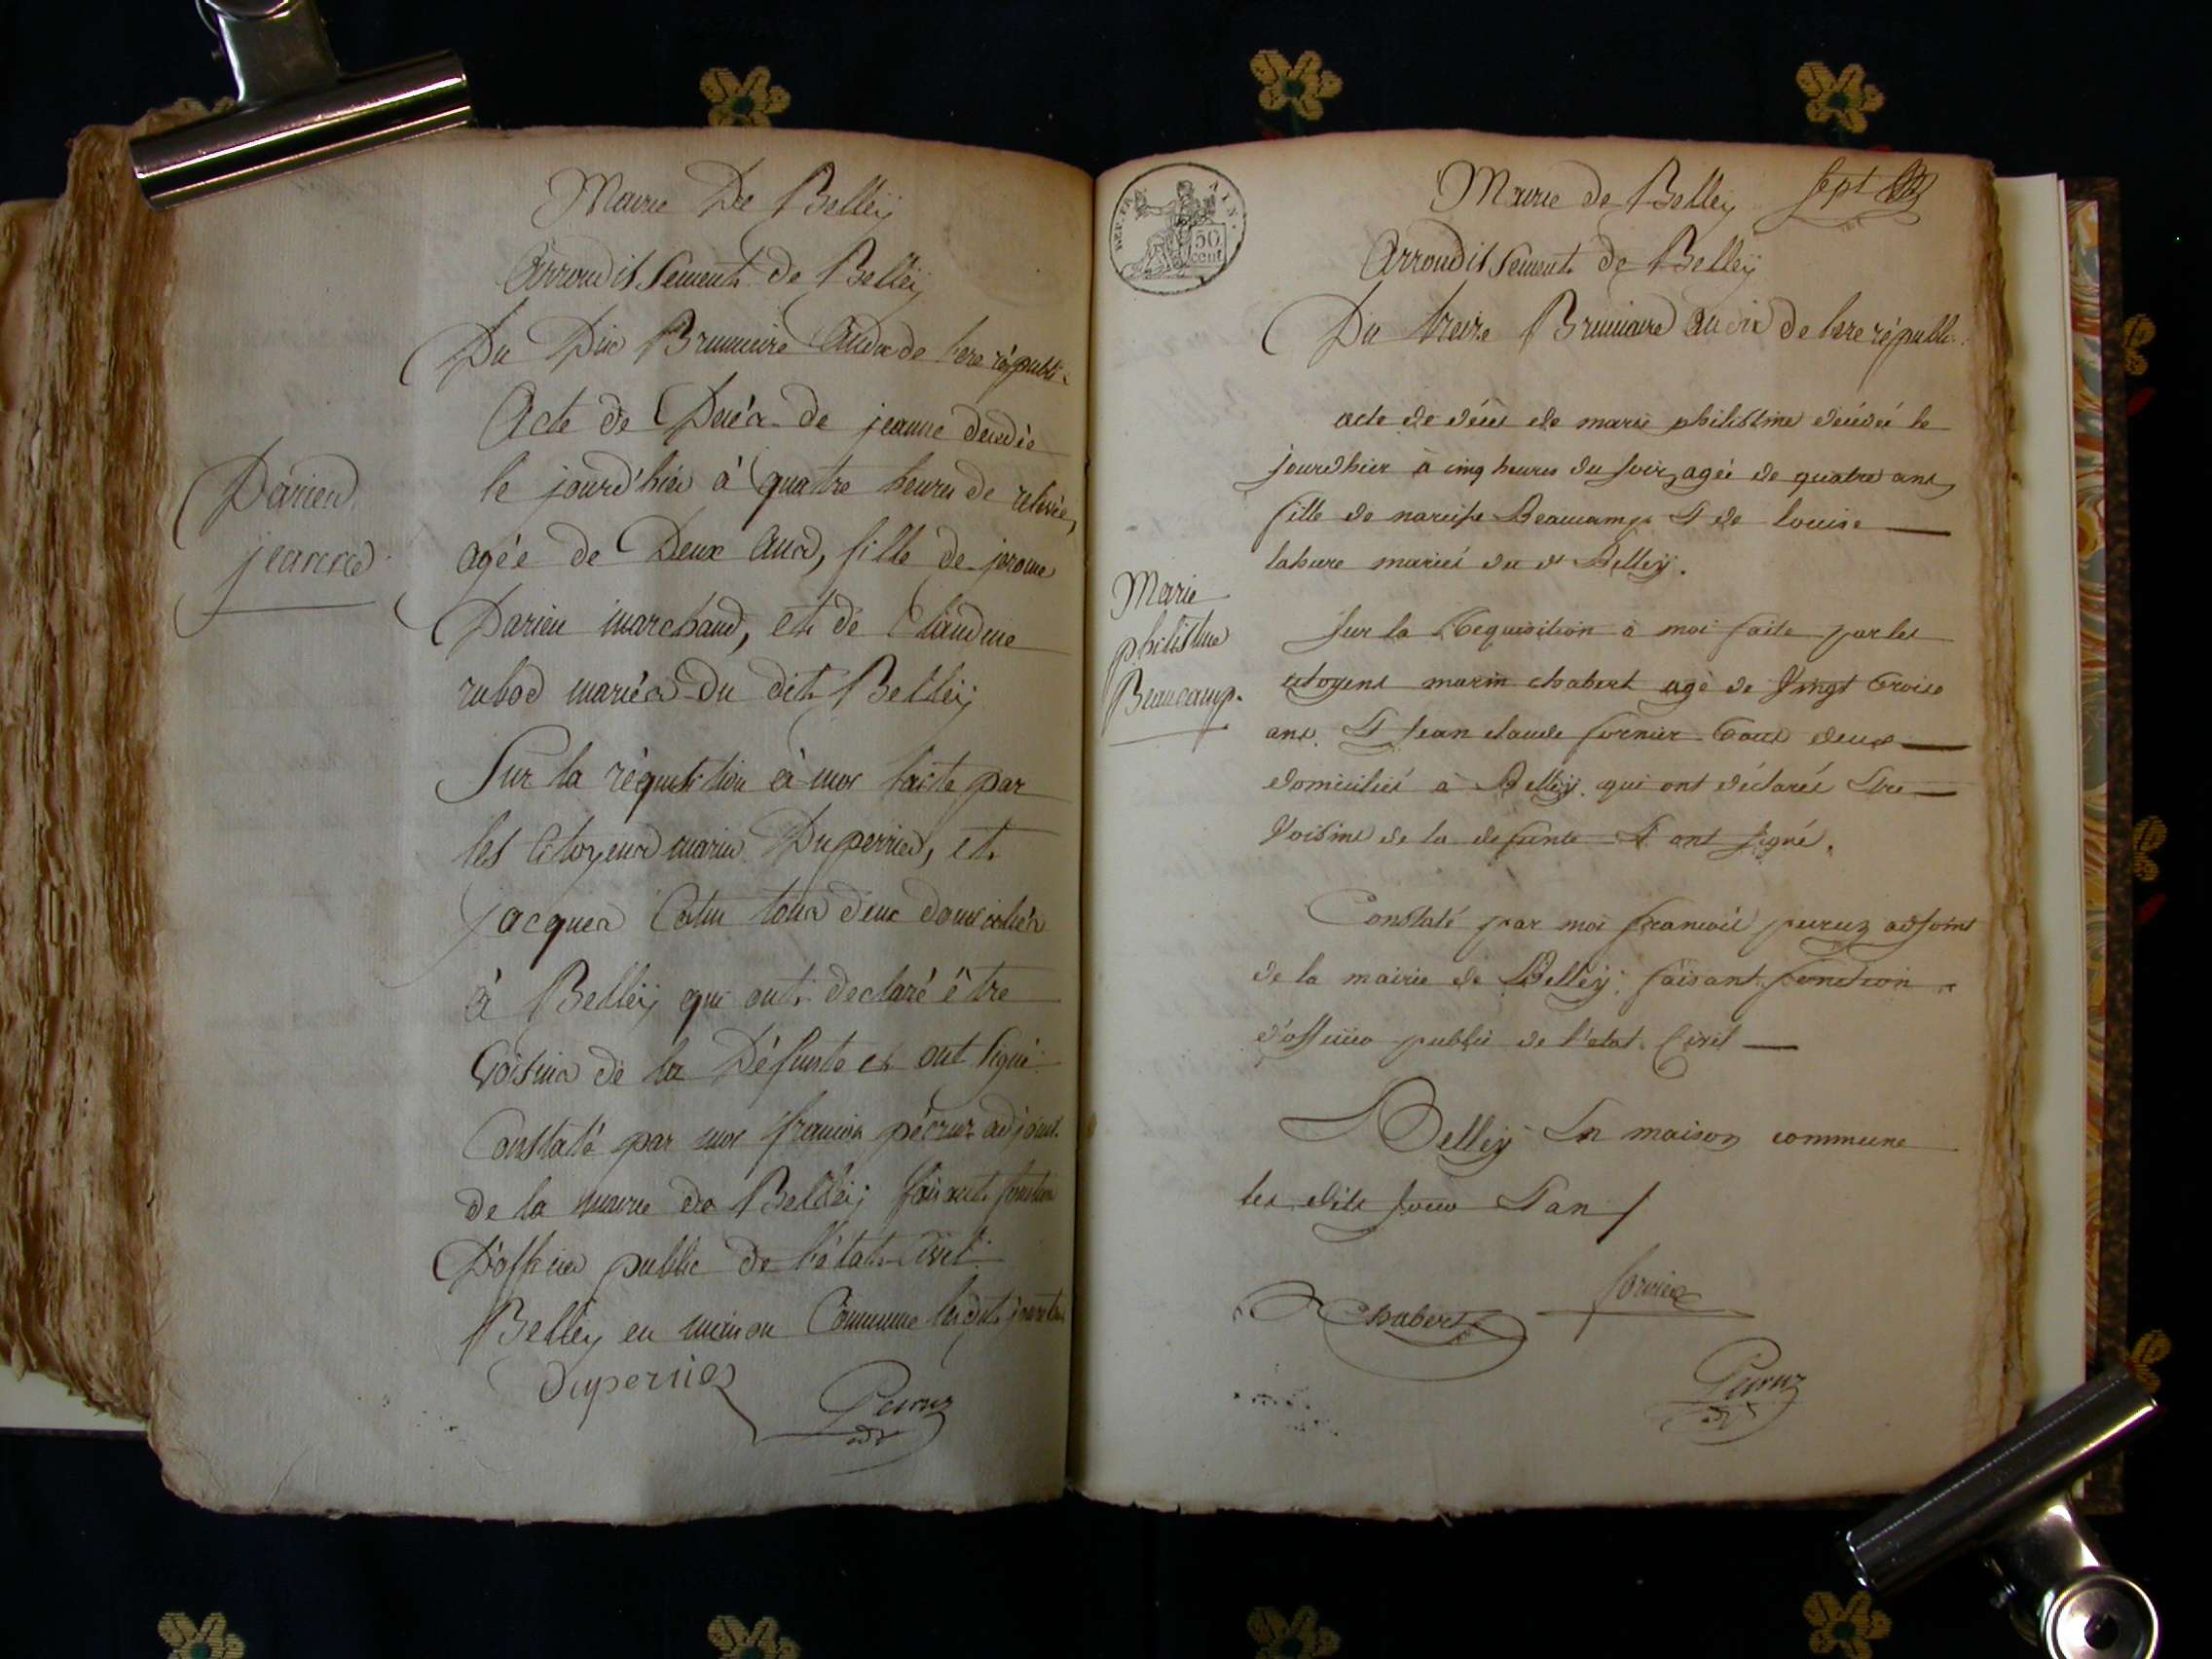 Mairie De Belleÿ
Arrondissement de Belleÿ
Du Dix Brumaire an dix de l'ere républi.
Acte de Décés de jeanne décedée
le jourd'hier à quatre heures de relevée,
agée de Deux ans, fille de jerome
Darieu marchand, et de Claudine
rubod mariés du dit Belleÿ
Sur la réquisition à moi faite par
les Citoyens marin Duperrier, et
jacques Cotin tous deux domiciliés
à Belleÿ qui ont declaré être
Voisins de la Défunte et ont signé.
Constaté par moi francois pécruz adjoint
de la mairie de Belleÿ faisant fonction
D'officier public de l'état civil.
Belleÿ en maison Commune les dits jour et an
Duperrier
Darieu
jeanne
REP. FRA.
AIN.
50
cent
Mairie de Belleÿ
sept
Arrondissement de Belleÿ
Du treize Brumaire an dix de l'ere républi.
acte de décès de marie philistine décédée le
jourdhier à cinq heures du soir, agée de quatre ans,
fille de narcisse Beaucamp & de louise
lahure mariés du dt Belleÿ.
Marie
philistine
Beaucamp.
Sur la Requisition à moi faite par les
citoyens marin chabert agé de Vingt Trois
ans. & Jean claude fornier Tous deux
domiciliés à Belleÿ. qui ont déclarés Etre
Voisins de la defunte & ont signé.
Constaté par moi françois peiruz adjoint
de la mairie de Belleÿ. faisant fonction
d'officier public de l'etat Civil
Belleÿ En maison commune
les dits Jour & an
Chabert
fornier